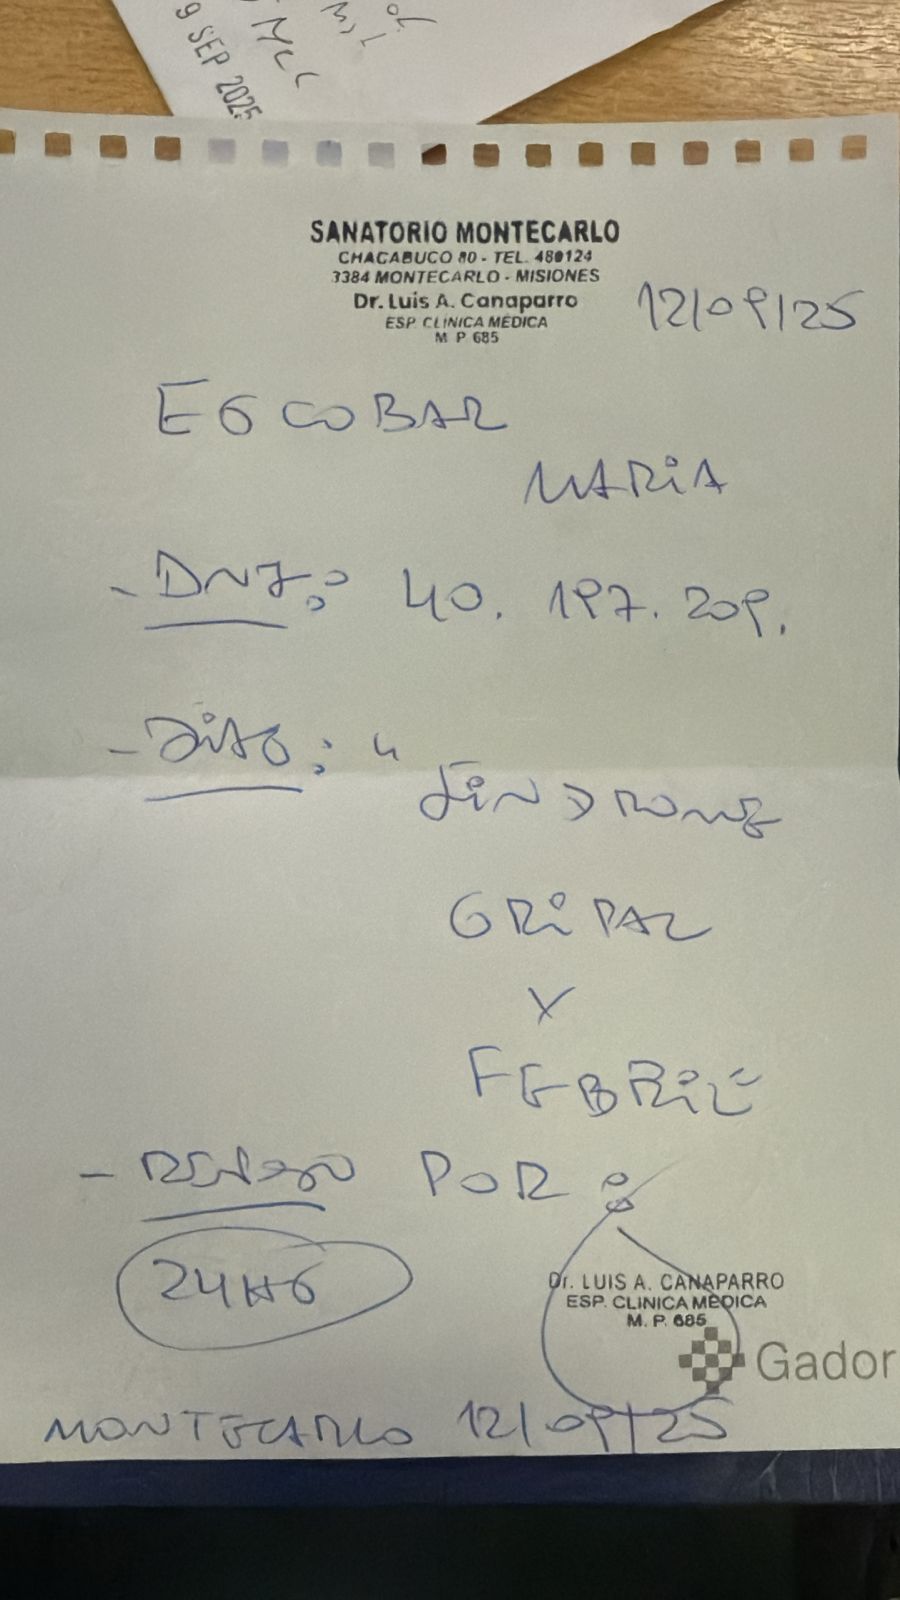 9 SEP 2025
SANATORIO MONTECARLO
CHACABUCO 80 - TEL. 480124
3384 MONTECARLO - MISIONES
Dr. Luis A. Canaparro
ESP. CLINICA MEDICA
M. P. 685
12/09/25
ESCOBAR
MARIA
- DNI: 40.197.209.
- DIAG: "SINDROME
GRIPAL
Y
FEBRIL
- REPOSO POR:
24HS
Dr. LUIS A. CANAPARRO
ESP. CLINICA MEDICA
M. P. 685
Gador
MONTECARLO 12/09/25